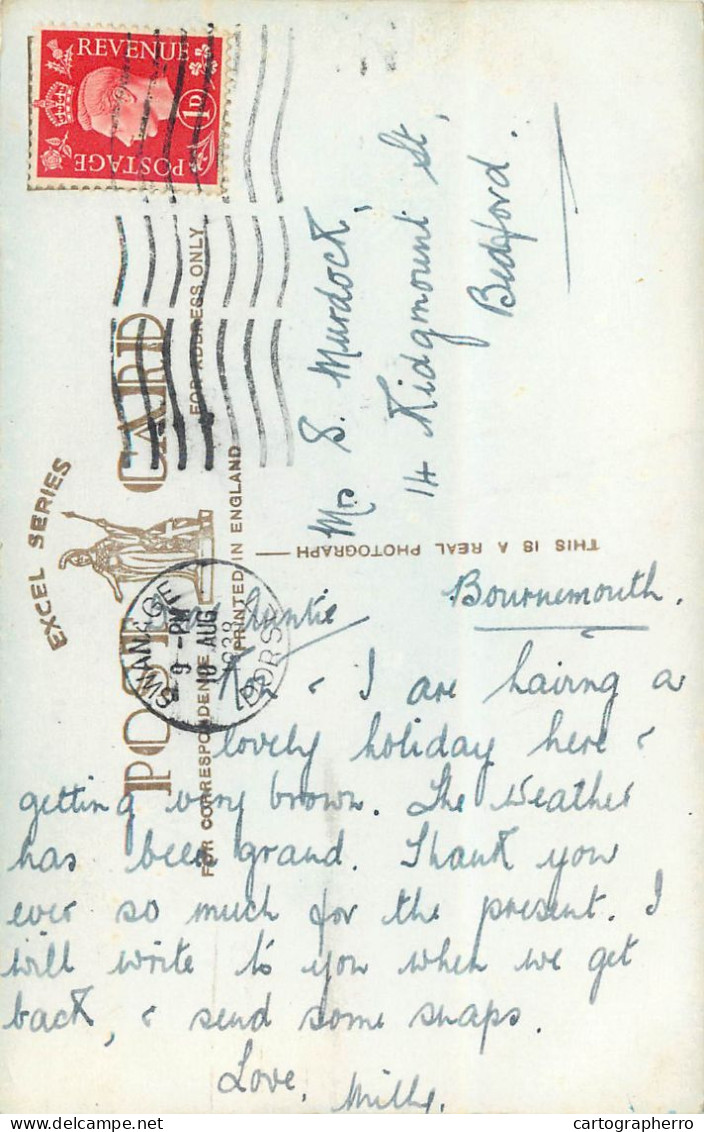 REVENUE
1D
POSTAGE
EXCEL SERIES
POST CARD
FOR CORRESPONDENCE
FOR ADDRESS ONLY
PRINTED IN ENGLAND
THIS IS A REAL PHOTOGRAPH
SWANAGE
9 - PM
10 AUG
DORSET
Mrs S. Murdock,
14 Kidgmount St,
Bedford.
Bournemouth.
Dear Auntie
Ken & I are having a
lovely holiday here &
getting very brown. The weather
has been grand. Thank you
ever so much for the present. I
will write to you when we get
back, & send some snaps.
Love,
Milly.
cartographerro